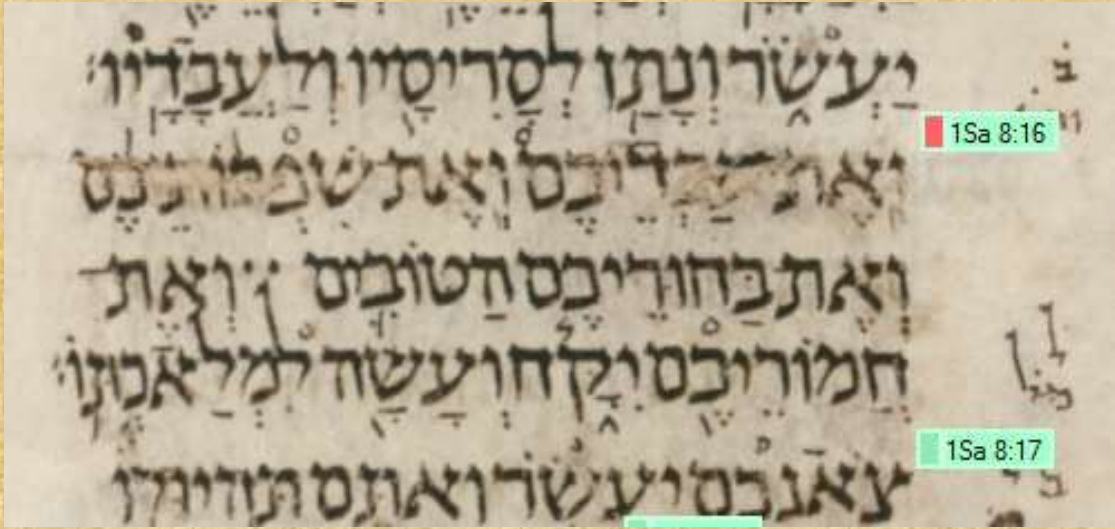 יַעְשֹׂר וְנָתַן לְסָרִיסָיו וְלַעֲבָדָיו׃ ב֗
1Sa 8:16
וְאֶת עַבְדֵיכֶם וְאֶת שִׁפְחוֹתֵיכֶם
וְאֶת בַּחוּרֵיכֶם הַטּוֹבִים וְאֶת
חֲמוֹרֵיכֶם יִקָּח וְעָשָׂה לִמְלַאכְתּוֹ׃
1Sa 8:17
צֹאנְכֶם יַעְשֹׂר וְאַתֶּם תִּהְיוּ לוֹ